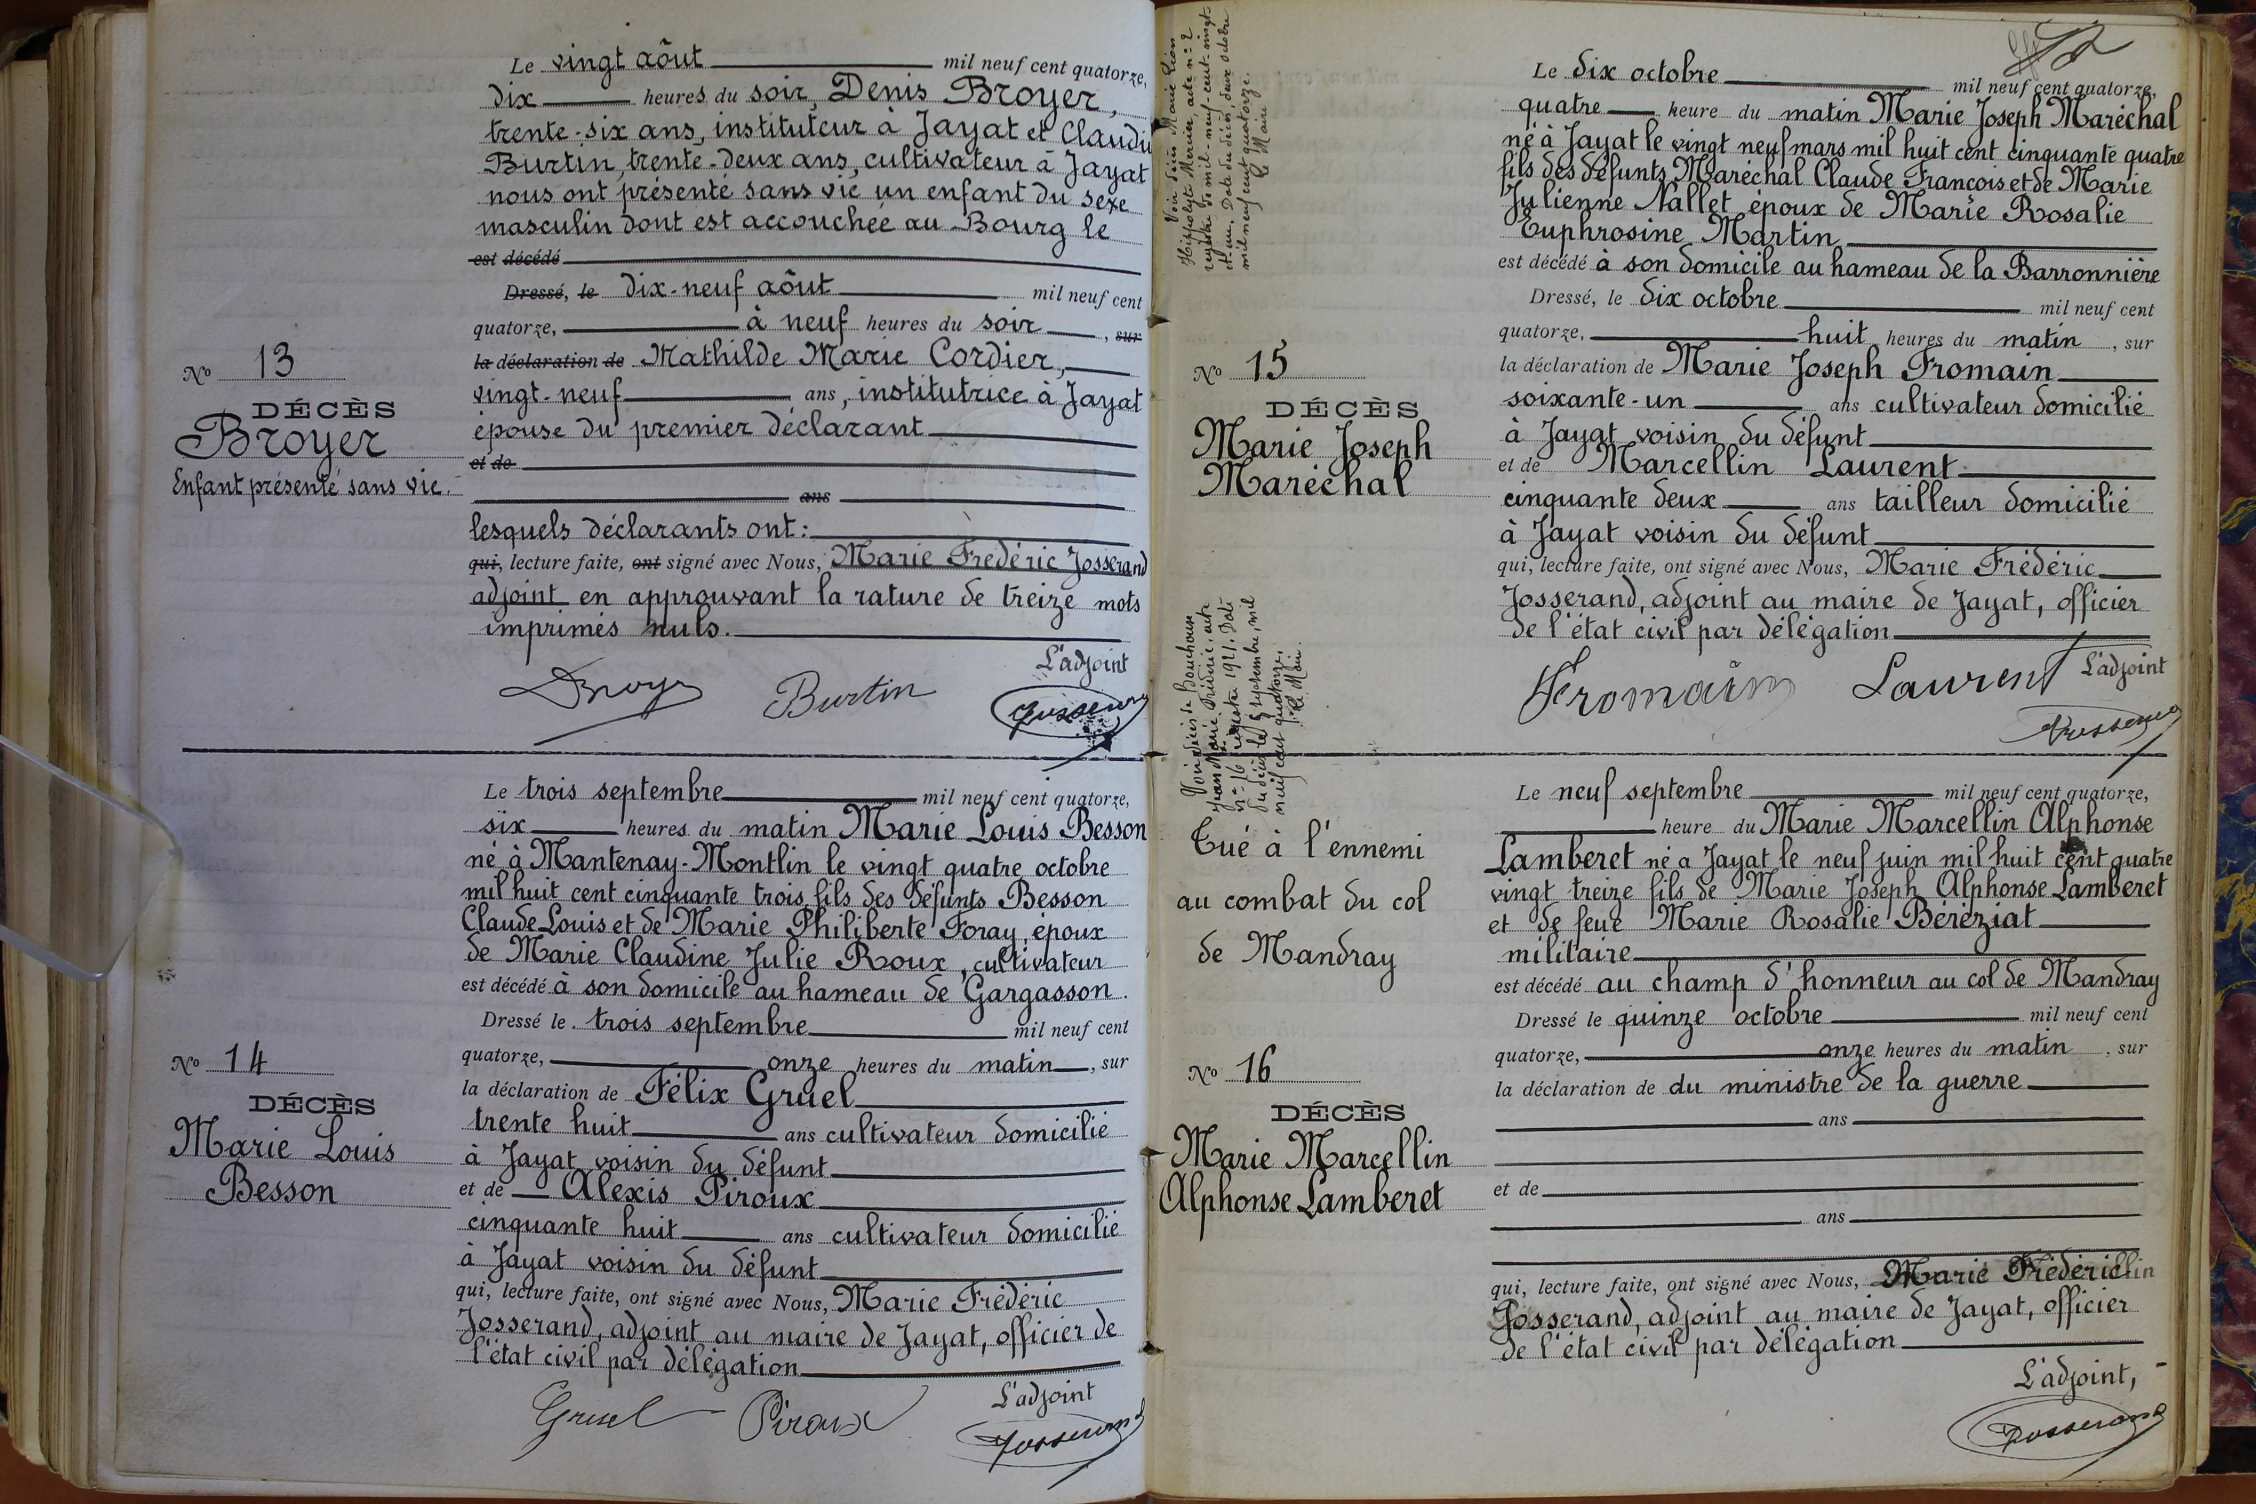 Le vingt août mil neuf cent quatorze,
dix heures du soir, Denis Broyer,
trente-six ans, instituteur à Jayat et Claudi
Burtin, trente-deux ans, cultivateur à Jayat
nous ont présenté sans vie un enfant du sexe
masculin dont est accouchée au Bourg le
est décédé
Dressé, le dix-neuf août mil neuf cent
quatorze, à neuf heures du soir, sur
la déclaration de Mathilde Marie Cordier,
vingt-neuf ans, institutrice à Jayat
épouse du premier déclarant
et de
ans
lesquels déclarants ont:
qui, lecture faite, ont signé avec Nous, Marie Fredéric Josserand
adjoint en approuvant la rature de treize mots
imprimés nuls.
L'adjoint
Broyer Burtin Josserand
No 13
DÉCÈS
Broyer
Enfant présenté sans vie.
Le trois septembre mil neuf cent quatorze,
six heures du matin Marie Louis Besson
né à Mantenay-Montlin le vingt quatre octobre
mil huit cent cinquante trois, fils des défunts Besson
Claude Louis et de Marie Philiberte Foray, époux
de Marie Claudine Julie Roux, cultivateur
est décédé à son domicile au hameau de Gargasson.
Dressé le trois septembre mil neuf cent
quatorze, onze heures du matin, sur
la déclaration de Félix Gruel
trente huit ans cultivateur domicilié
à Jayat voisin du défunt
et de Alexis Piroux
cinquante huit ans cultivateur domicilié
à Jayat voisin du défunt
qui, lecture faite, ont signé avec Nous, Marie Frédéric
Josserand, adjoint au maire de Jayat, officier de
l'état civil par délégation
L'adjoint
Gruel Piroux Josserand
No 14
DÉCÈS
Marie Louis
Besson
Voir décès Marie Léon
Hippolyte Mercier, acte n° 2
registre de mil-neuf-cent-vingt
et-un, Date du décès, deux octobre
mil neuf cent quatorze.
Le Maire
Le dix octobre mil neuf cent quatorze,
quatre heure du matin Marie Joseph Maréchal
né à Jayat le vingt neuf mars mil huit cent cinquante quatre
fils des défunts Maréchal Claude François et de Marie
Julienne Nallet époux de Marie Rosalie
Euphrosine Martin
est décédé à son domicile au hameau de la Barronnière
Dressé, le dix octobre mil neuf cent
quatorze, huit heures du matin, sur
la déclaration de Marie Joseph Fromain
soixante-un ans cultivateur domicilié
à Jayat voisin du défunt
et de Marcellin Laurent
cinquante deux ans tailleur domicilié
à Jayat voisin du défunt
qui, lecture faite, ont signé avec Nous, Marie Frédéric
Josserand, adjoint au maire de Jayat, officier
de l'état civil par délégation
L'adjoint
Fromain Laurent Josserand
No 15
DÉCÈS
Marie Joseph
Maréchal
Voir décès de Bouchoux
Jean Marie Frédéric, acte
n° 16 registre 1921. Date
du décès le septembre mil
neuf cent quatorze.
Le Maire.
Le neuf septembre mil neuf cent quatorze,
heure du Marie Marcellin Alphonse
Lamberet né a Jayat le neuf juin mil huit cent quatre
vingt treize fils de Marie Joseph Alphonse Lamberet
et de feue Marie Rosalie Béréziat
militaire
est décédé au champ d'honneur au col de Mandray
Dressé le quinze octobre mil neuf cent
quatorze, onze heures du matin, sur
la déclaration de du ministre de la guerre
ans
et de
ans
qui, lecture faite, ont signé avec Nous, Marie Frédéric
Josserand, adjoint au maire de Jayat, officier
de l'état civil par délégation
L'adjoint,
Josserand
Tué à l'ennemi
au combat du col
de Mandray
No 16
DÉCÈS
Marie Marcellin
Alphonse Lamberet